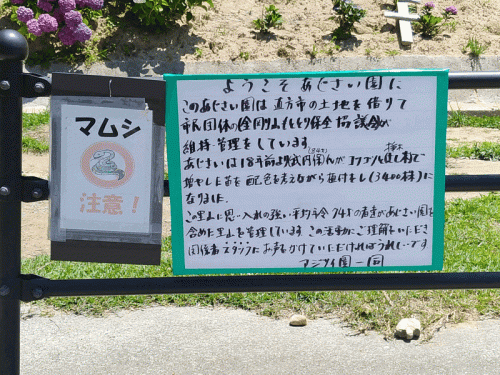 マムシ
注意！
ようこそ あじさい園に
このあじさい園は直方市の土地を借りて
市民団体の金剛山もととり保全協議会が
維持・管理をしています。
あじさいは18年前より
挿木
増やした苗を配色を考えながら植付をし(3400株)に
なりました。
この里山に思い入れの強い平均年令74才の有志があじさい園を
含めた里山を管理しています この活動にご理解をいただき
関係者スタッフにお声をかけていただければうれしいです
アジサイ園一同